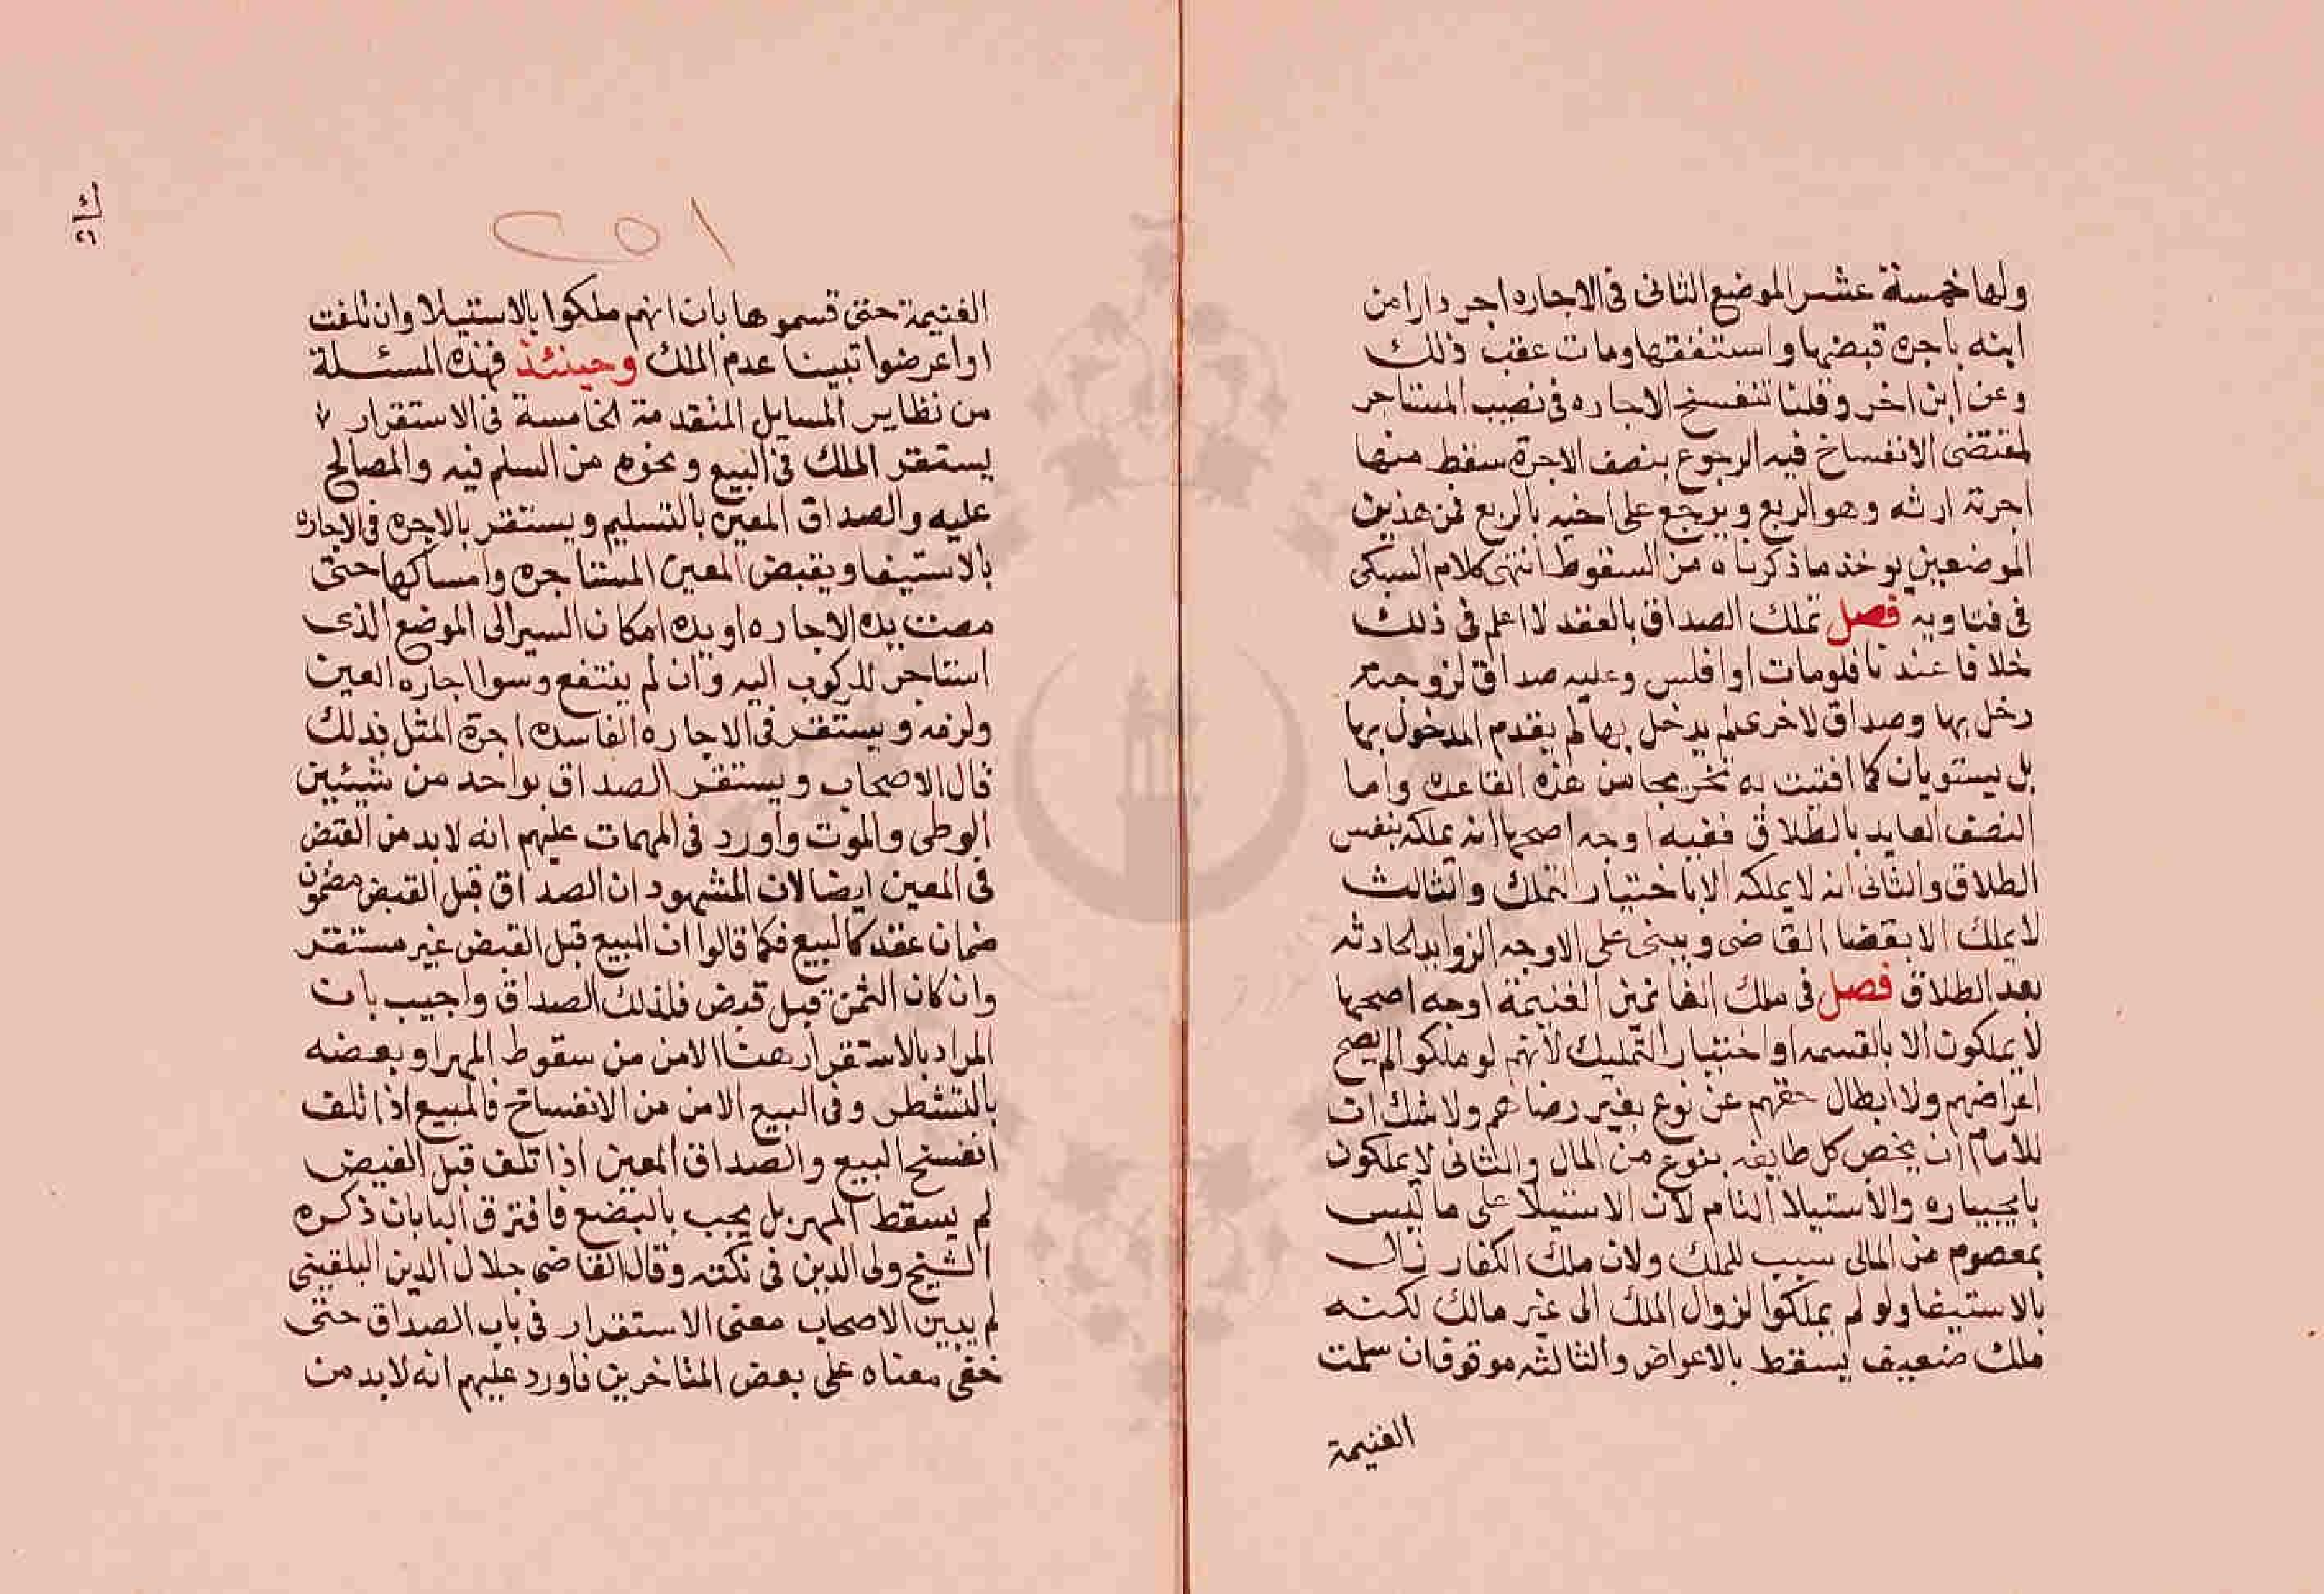 ولها خمسة عشر الموضع الثانى فى الاجاره اجر دارا من
ابنه باجره قبضها واستنفقها ومات عقب ذلك
وعن ابن اخر وقلنا تنفسخ الاجاره فى نصيب المستاجر
لمقتضى الانفساخ فيه الرجوع بنصف الاجرة سقط منها
اجرتة ارثه وهو الربع ويرجع على اخيه بالربع فمن هذين
الموضعين يوخذ ما ذكرناه من السقوط انتهى كلام السبكى
فى فتاويه فصل تملك الصداق بالعقد لا اعلم فى ذلك
خلافا عندنا فلو مات او افلس وعليه صداق لزوجته
دخل بها وصداق لاخرى لم يدخل بها لم يقدم المدخول بها
بل يستويان كما افتيت به تخريجا من هذه القاعده واما
النصف العايد بالطلاق ففيه اوجه اصحها انه يملكه بنفس
الطلاق والثانى انه لا يملكه الا باختيار التملك والثالث
لا يملك الا بقضا القاضى ويبنى على الاوجه الزوايد الحادثه
بعد الطلاق فصل فى ملك الغانمين الغنيمة اوجه اصحها
لا يملكون الا بالقسمه او اختيار التمليك لانهم لو ملكوا لم يصح
اعراضهم ولا ابطال حقهم عن نوع بغير رضاهم ولا شك ان
للامام ان يخص كل طايفه بنوع من المال والثانى لا يملكون
والاستيلا التام لان الاستيلا على ما ليس
بمعصوم من المالى سبب للملك ولان ملك الكفار زال
بالاستيفا ولو لم يملكوا لزوال الملك الى غير مالك لكنه
ملك ضعيف يسقط بالاعراض والثالثه موقوف ان سلمت
الغنيمة
١٥٢
الغنيمة حتى قسموها بان انهم ملكوا بالاستيلا وان تلفت
او اعرضوا تبينا عدم الملك وحينئذ فهذه المسئلة
من نظاير المسايل المتقدمة الخامسة فى الاستقرار لا
يستقر الملك فى البيع ونحوه من السلم فيه والمصالح
عليه والصداق المعين بالتسليم ويستقر بالاجره فى الاجاره
بالاستيفا ويقبض المعين المستاجره وامساكها حتى
مضت يده الاجاره او يده امكان السير الى الموضع الذى
استاجر للركوب اليه وان لم ينتفع وسوا اجاره العين
ولزمه ويستقر فى الاجاره الفاسده اجرة المثل بذلك
قال الاصحاب ويستقر الصداق بواحد من شيئين
الوطى والموت واورد فى المهمات عليهم انه لا بد من القبض
فى المعين ايضا لان المشهود ان الصداق قبل القبض مضمون
ضمان عقد كالبيع فكما قالوا ان المبيع قبل القبض غير مستقر
وان كان الثمن قبل قبض فلذلك الصداق واجيب بان
المراد بالاستقرار هنا الامن من سقوط المهر او بعضه
بالتشطر وفى البيع الامن من الانفساخ فالمبيع اذا تلف
انفسخ البيع والصداق المعين اذا تلف قبل القبض
لم يسقط المهر بل يجب بالبضع فافترق البابان ذكره
الشيخ ولى الدين فى نكته وقال القاضى جلال الدين البلقينى
لم يبين الاصحاب معنى الاستقرار فى باب الصداق حتى
خفى معناه على بعض المتاخرين فاورد عليهم انه لا بد من